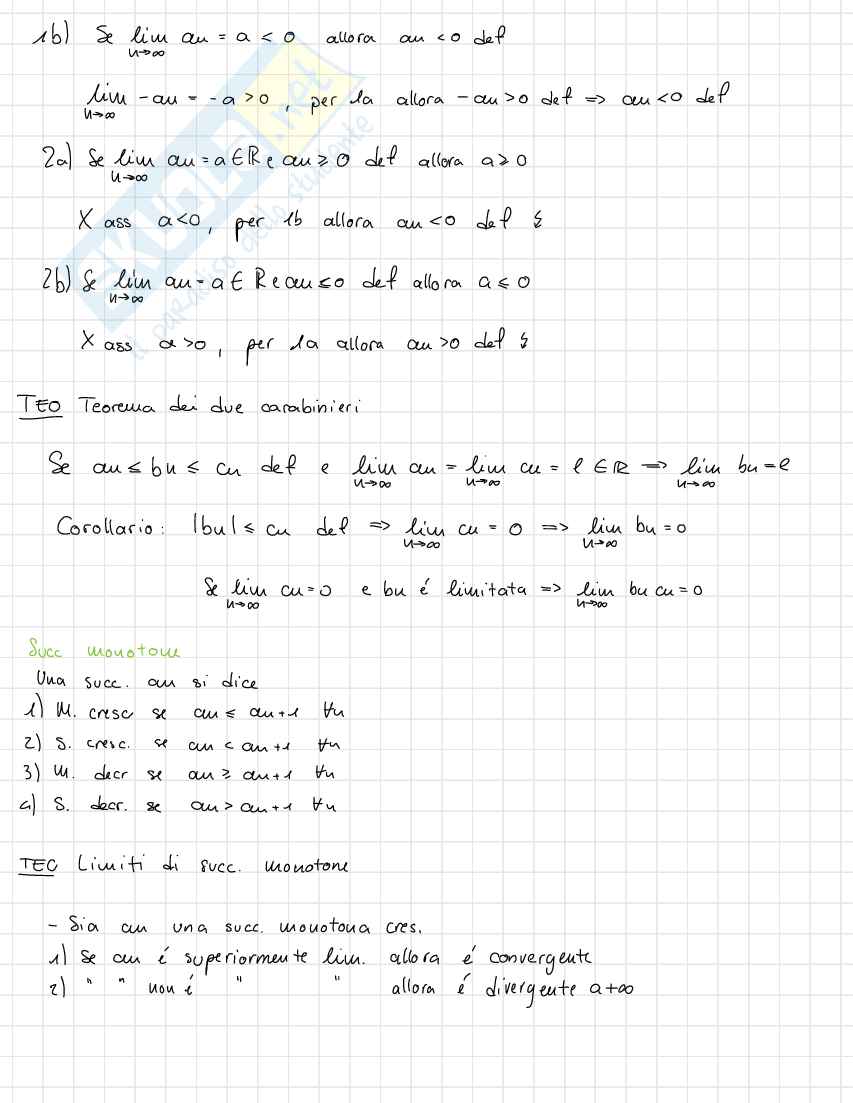 1b) Se lim n→∞ an = a < 0 allora an < 0 def
lim n→∞ -an = -a > 0, per 1a allora -an > 0 def => an < 0 def
2a) Se lim n→∞ an = a ∈ ℝ e an ≥ 0 def allora a ≥ 0
X ass a < 0, per 1b allora an < 0 def ↯
2b) Se lim n→∞ an = a ∈ ℝ e an ≤ 0 def allora a ≤ 0
X ass a > 0, per 1a allora an > 0 def ↯
TEO Teorema dei due carabinieri
Se an ≤ bn ≤ cn def e lim n→∞ an = lim n→∞ cn = l ∈ ℝ => lim n→∞ bn = l
Corollario: |bn| ≤ cn def => lim n→∞ cn = 0 => lim n→∞ bn = 0
Se lim n→∞ cn = 0 e bn é limitata => lim n→∞ bn cn = 0
Succ monotone
Una succ. an si dice
1) M. cresc se an ≤ an+1 ∀n
2) S. cresc. se an < an+1 ∀n
3) M. decr se an ≥ an+1 ∀n
4) S. decr. se an > an+1 ∀n
TEO Limiti di succ. monotone
- Sia an una succ. monotona cres.
1) Se an é superiormente lim. allora é convergente
2) " " non é " " allora é divergente a +∞
SKUOLA.net
il paradiso dello studente